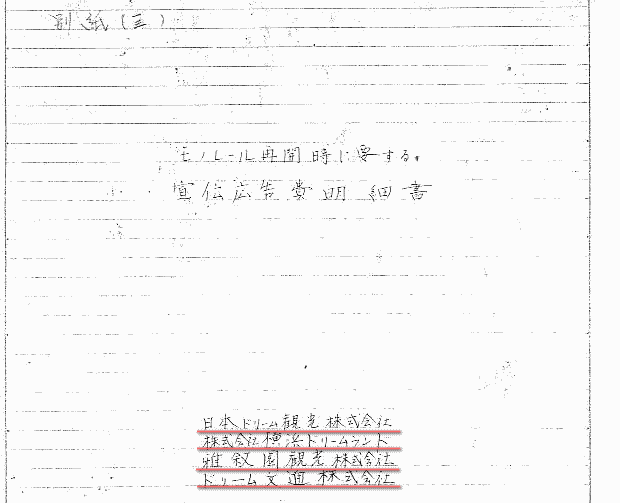 別紙(三)
モノレール再開時に要する。
宣伝広告費明細書
日本ドリーム観光株式会社
株式会社横浜ドリームランド
雅叙園観光株式会社
ドリーム交通株式会社